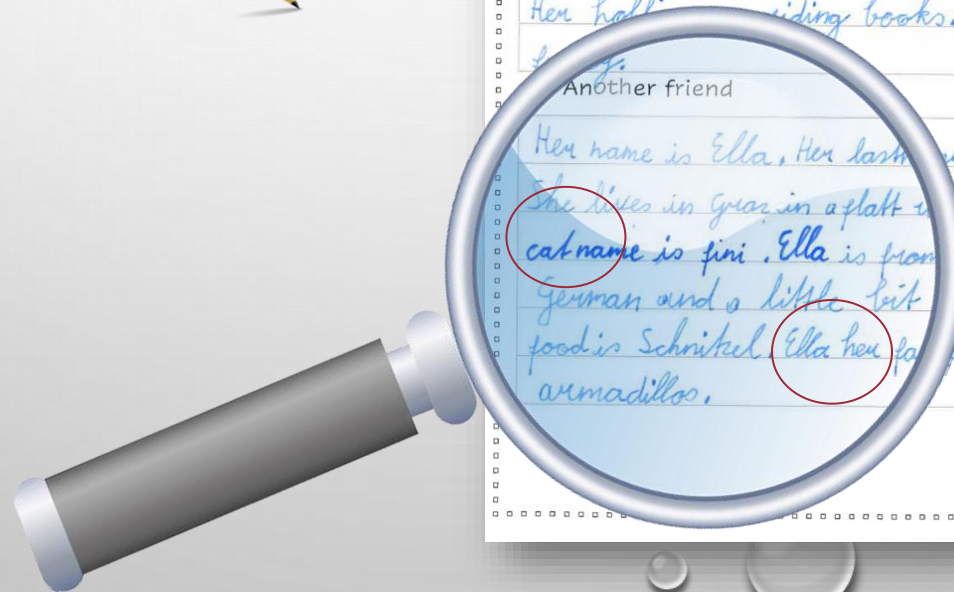 Her riding books.
Another friend
Her name is Ella. Her last
She lives in Graz in a flatt
catname is fini. Ella is from
German and a little bit
food is Schnitzel. Ella her fa
armadillos.